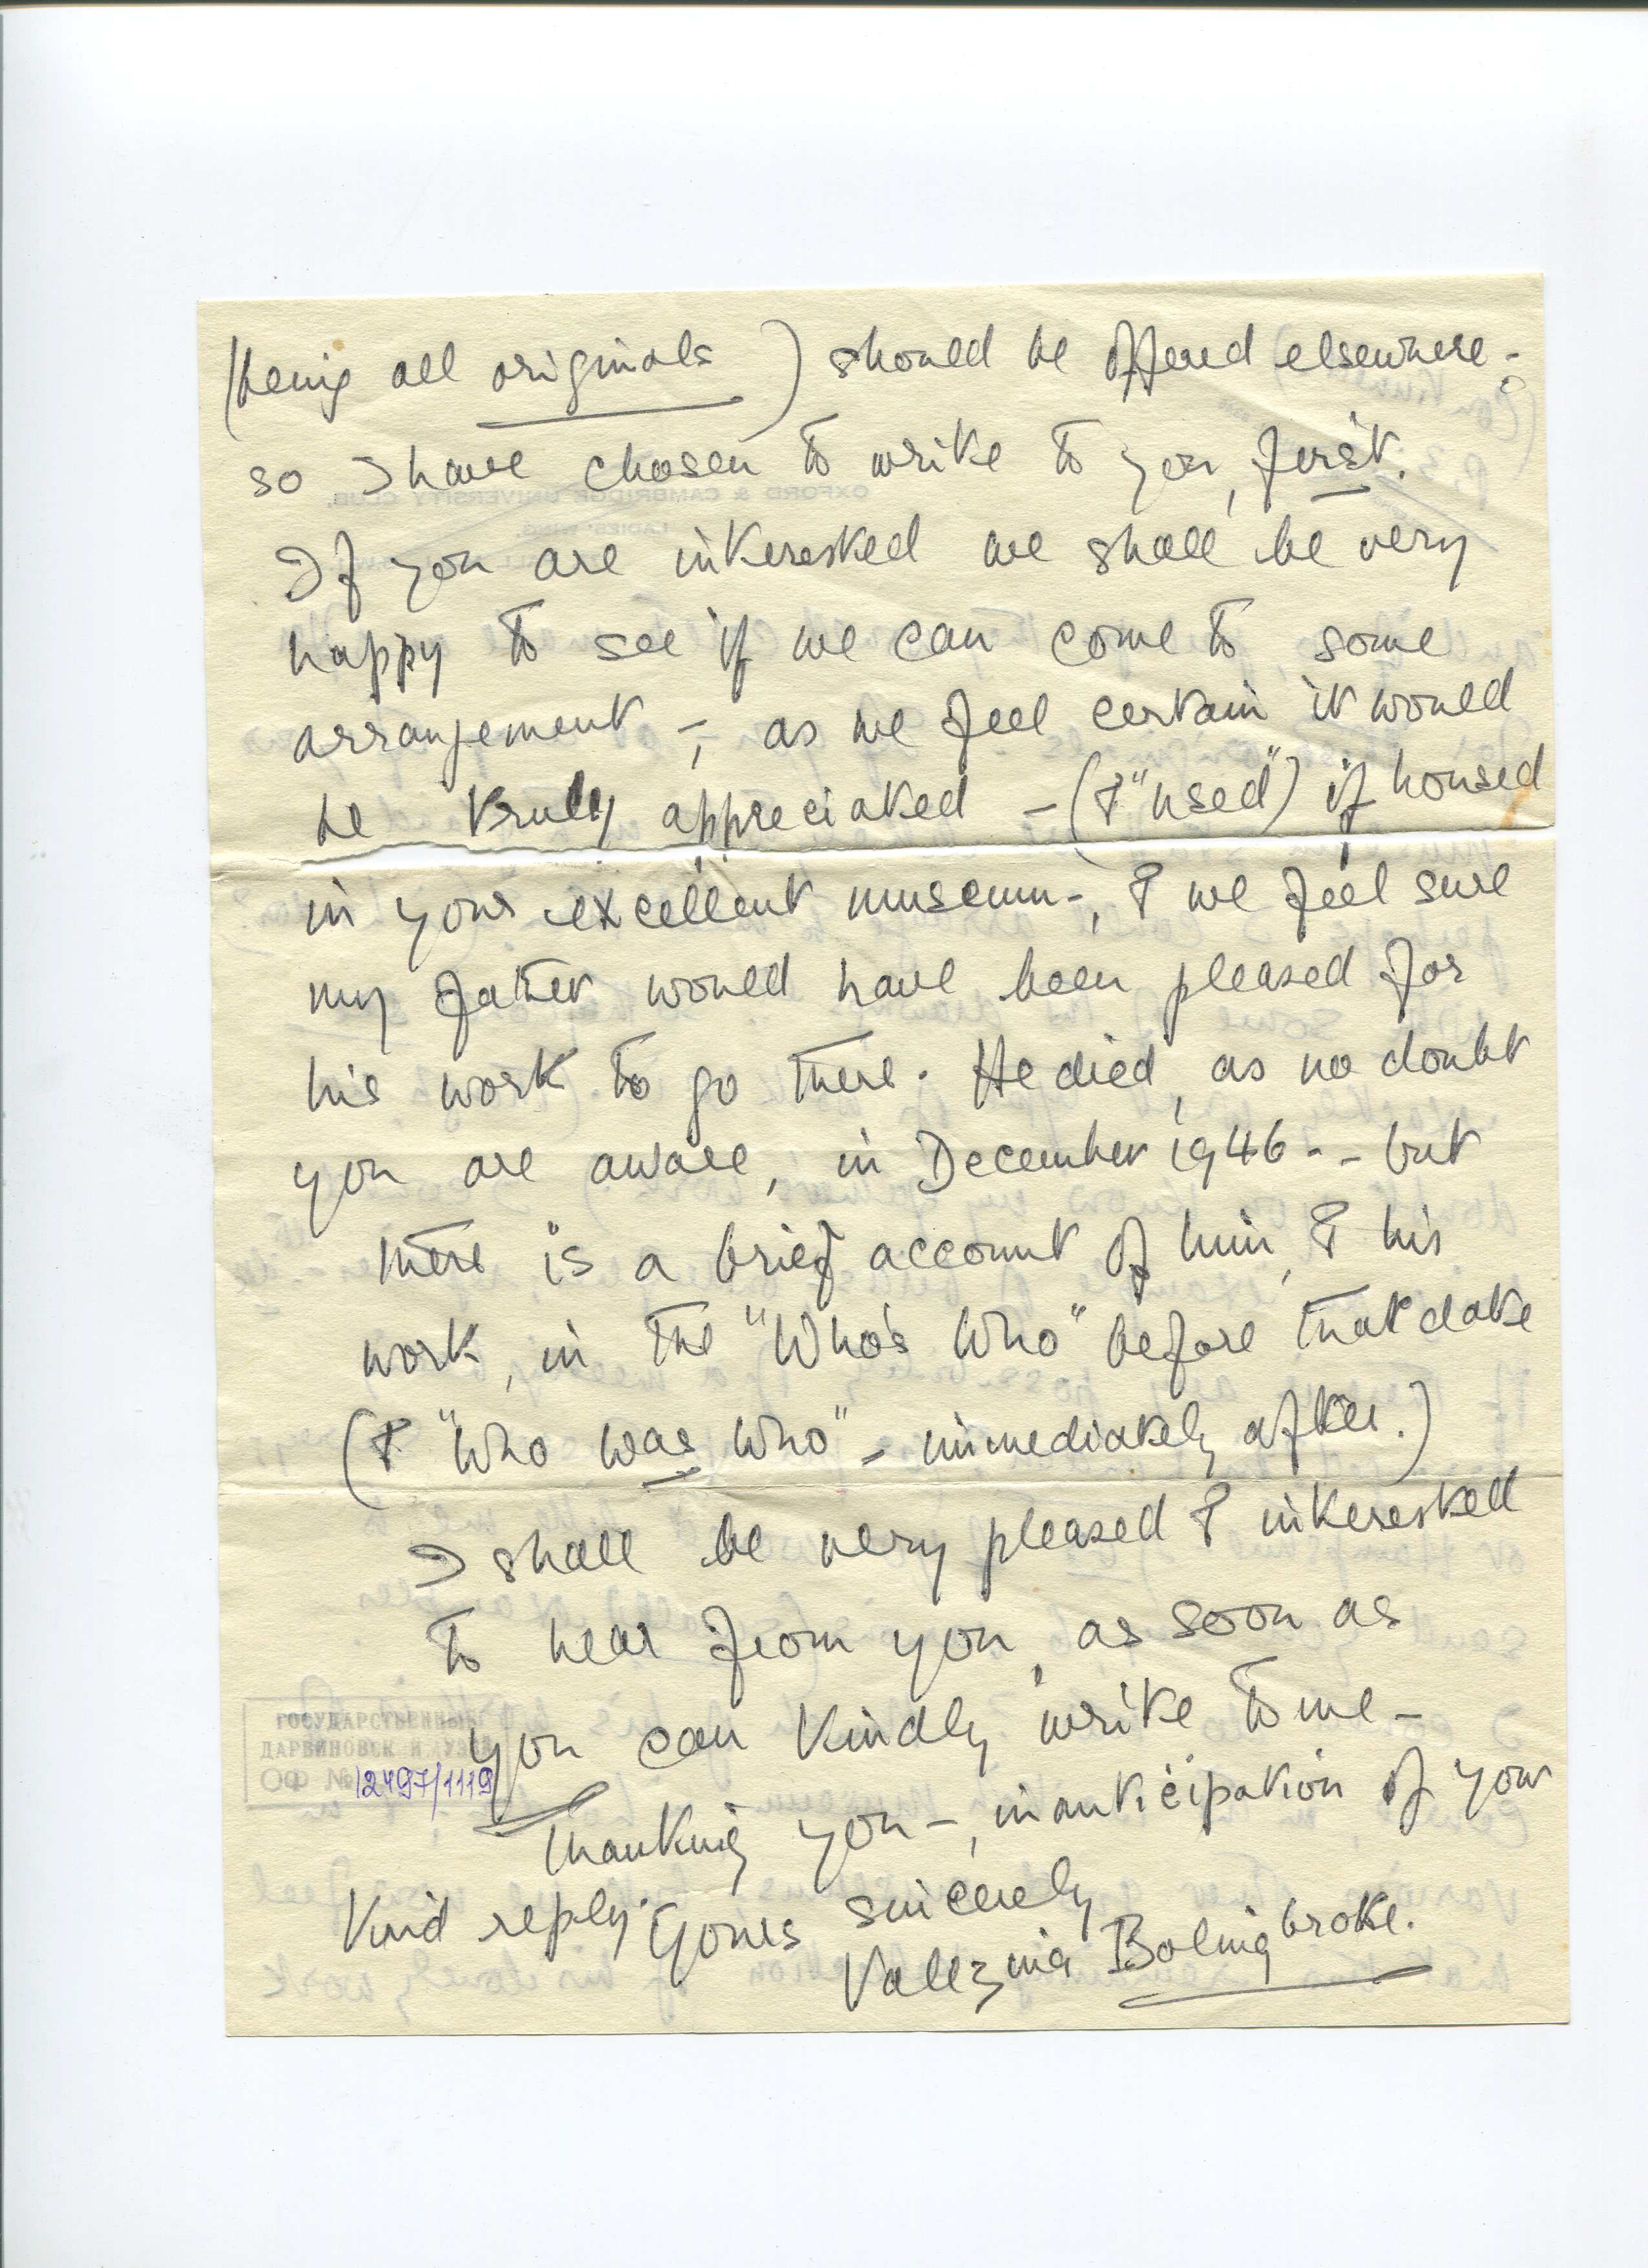 (being all originals) should be offered elsewhere -
so I have chosen to write to you, first.
If you are interested we shall be very
happy to see if we can come to some
arrangement -, as we feel certain it would
be truly appreciated - (& "used") if housed
in your excellent museum -, & we feel sure
my father would have been pleased for
his work to go there. He died, as no doubt
you are aware, in December 1946 - - but
there is a brief account of him, & his
work, in the "Who's Who" before that date
(& "Who was Who" - immediately after.)
I shall be very pleased & interested
to hear from you, as soon as
you can kindly write to me -
Thanking you -, in anticipation of your
kind reply. Yours sincerely
Valezina Bolingbroke.
ГОСУДАРСТВЕННЫЙ
ДАРВИНОВСКИЙ МУЗЕЙ
ОФ № 12497/1119